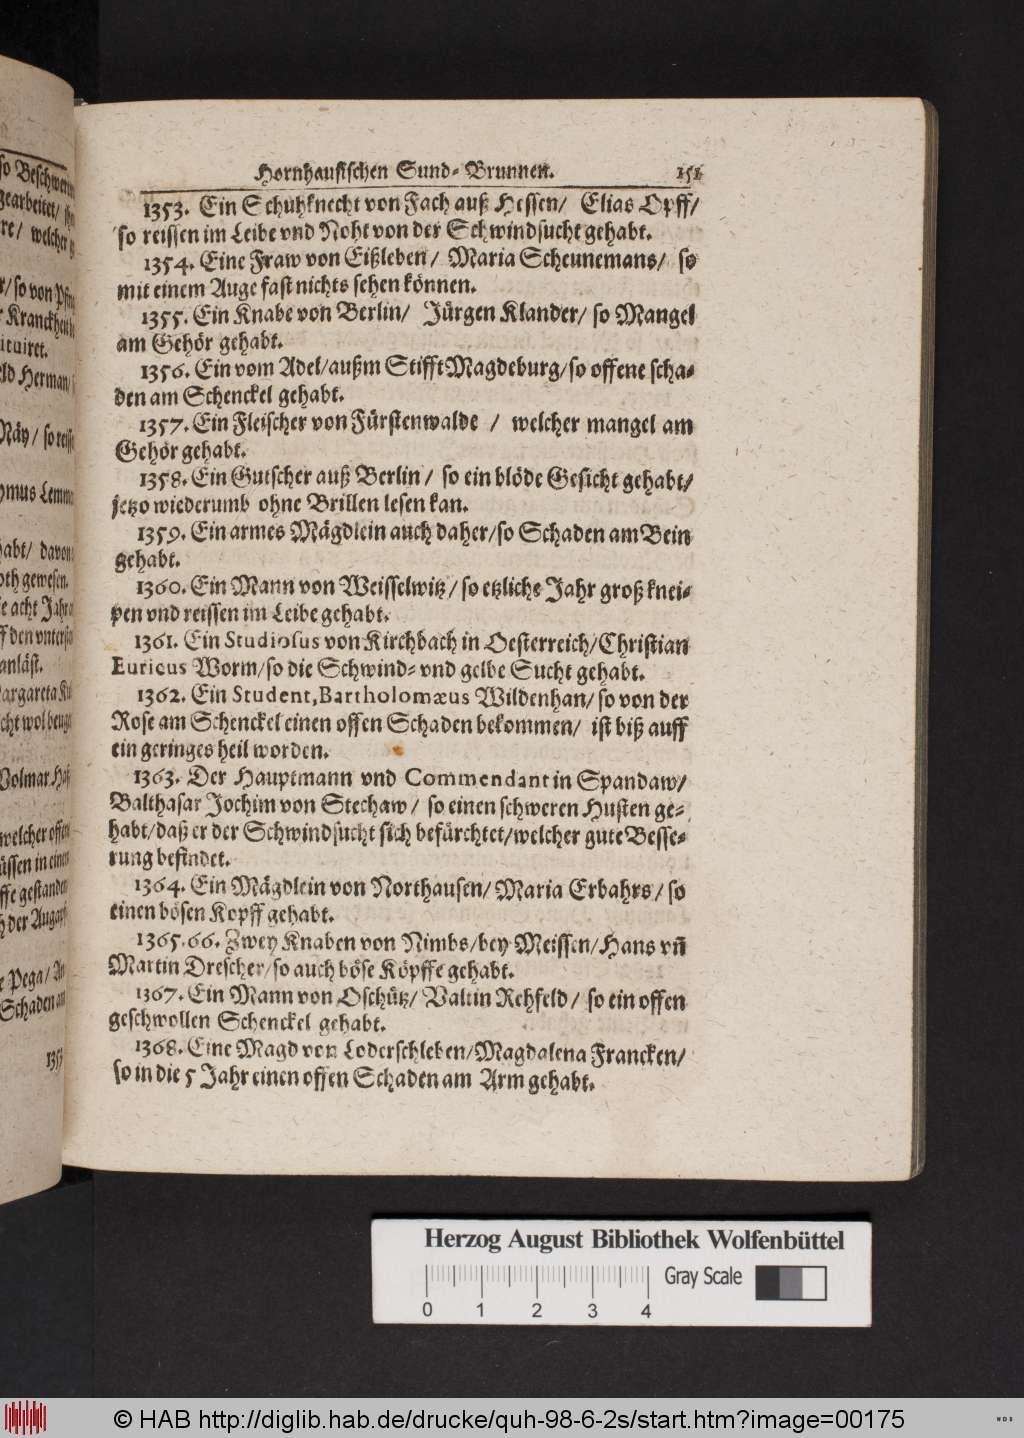 Hornhausischen Gund-Brunnen. 151
1353. Ein Schuhknecht von Fach auß Hessen/ Elias Opff/
so reissen im Leibe vnd Noht von der Schwindsucht gehabt.
1354. Eine Fraw von Eißleben/ Maria Scheunemans/ so
mit einem Auge fast nichts sehen können.
1355. Ein Knabe von Berlin/ Jürgen Klander/ so Mangel
am Gehör gehabt.
1356. Ein vom Adel/außm Stifft Magdeburg/so offene scha-
den am Schenckel gehabt.
1357. Ein Fleischer von Fürstenwalde / welcher mangel am
Gehör gehabt.
1358. Ein Gutscher auß Berlin/ so ein blöde Gesicht gehabt/
jetzo wiederumb ohne Brillen lesen kan.
1359. Ein armes Mägdlein auch daher/so Schaden am Bein
gehabt.
1360. Ein Mann von Weisselwitz/so etzliche Jahr groß knei-
pen vnd reissen im Leibe gehabt.
1361. Ein Studiosus von Kirchbach in Oesterreich/Christian
Euricus Worm/so die Schwind- vnd gelbe Sucht gehabt.
1362. Ein Student, Bartholomæus Wildenhan/so von der
Rose am Schenckel einen offen Schaden bekommen/ ist biß auff
ein geringes heil worden.
1363. Der Hauptmann vnd Commendant in Spandaw/
Balthasar Jochim von Stechaw/ so einen schweren Husten ge-
habt/daß er der Schwindsucht sich befürchtet/welcher gute Besse-
rung befindet.
1364. Ein Mägdlein von Northausen/Maria Erbahrs/so
einen bösen Kopff gehabt.
1365.66. Zwey Knaben von Nimbs/bey Meissen/Hans vñ
Martin Drescher/so auch böse Köpffe gehabt.
1367. Ein Mann von Oschütz/Valtin Rehfeld/ so ein offen
geschwollen Schenckel gehabt.
1368. Eine Magd von Loderschleben/Magdalena Francken/
so in die 5 Jahr einen offen Schaden am Arm gehabt.
so Beschwer
gearbeitet/
welcher
so von
Kranckheit
ituiret.
Herman/
Näy/ so
Lemm
habt/ davon
gewesen.
acht Jahr
den
anläst.
Margareta
wol
Volmar
welcher offen
üssen in einen
gestanden
der
Pega/
Schaden am
1353
Herzog August Bibliothek Wolfenbüttel
0 1 2 3 4 Gray Scale
© HAB http://diglib.hab.de/drucke/quh-98-6-2s/start.htm?image=00175